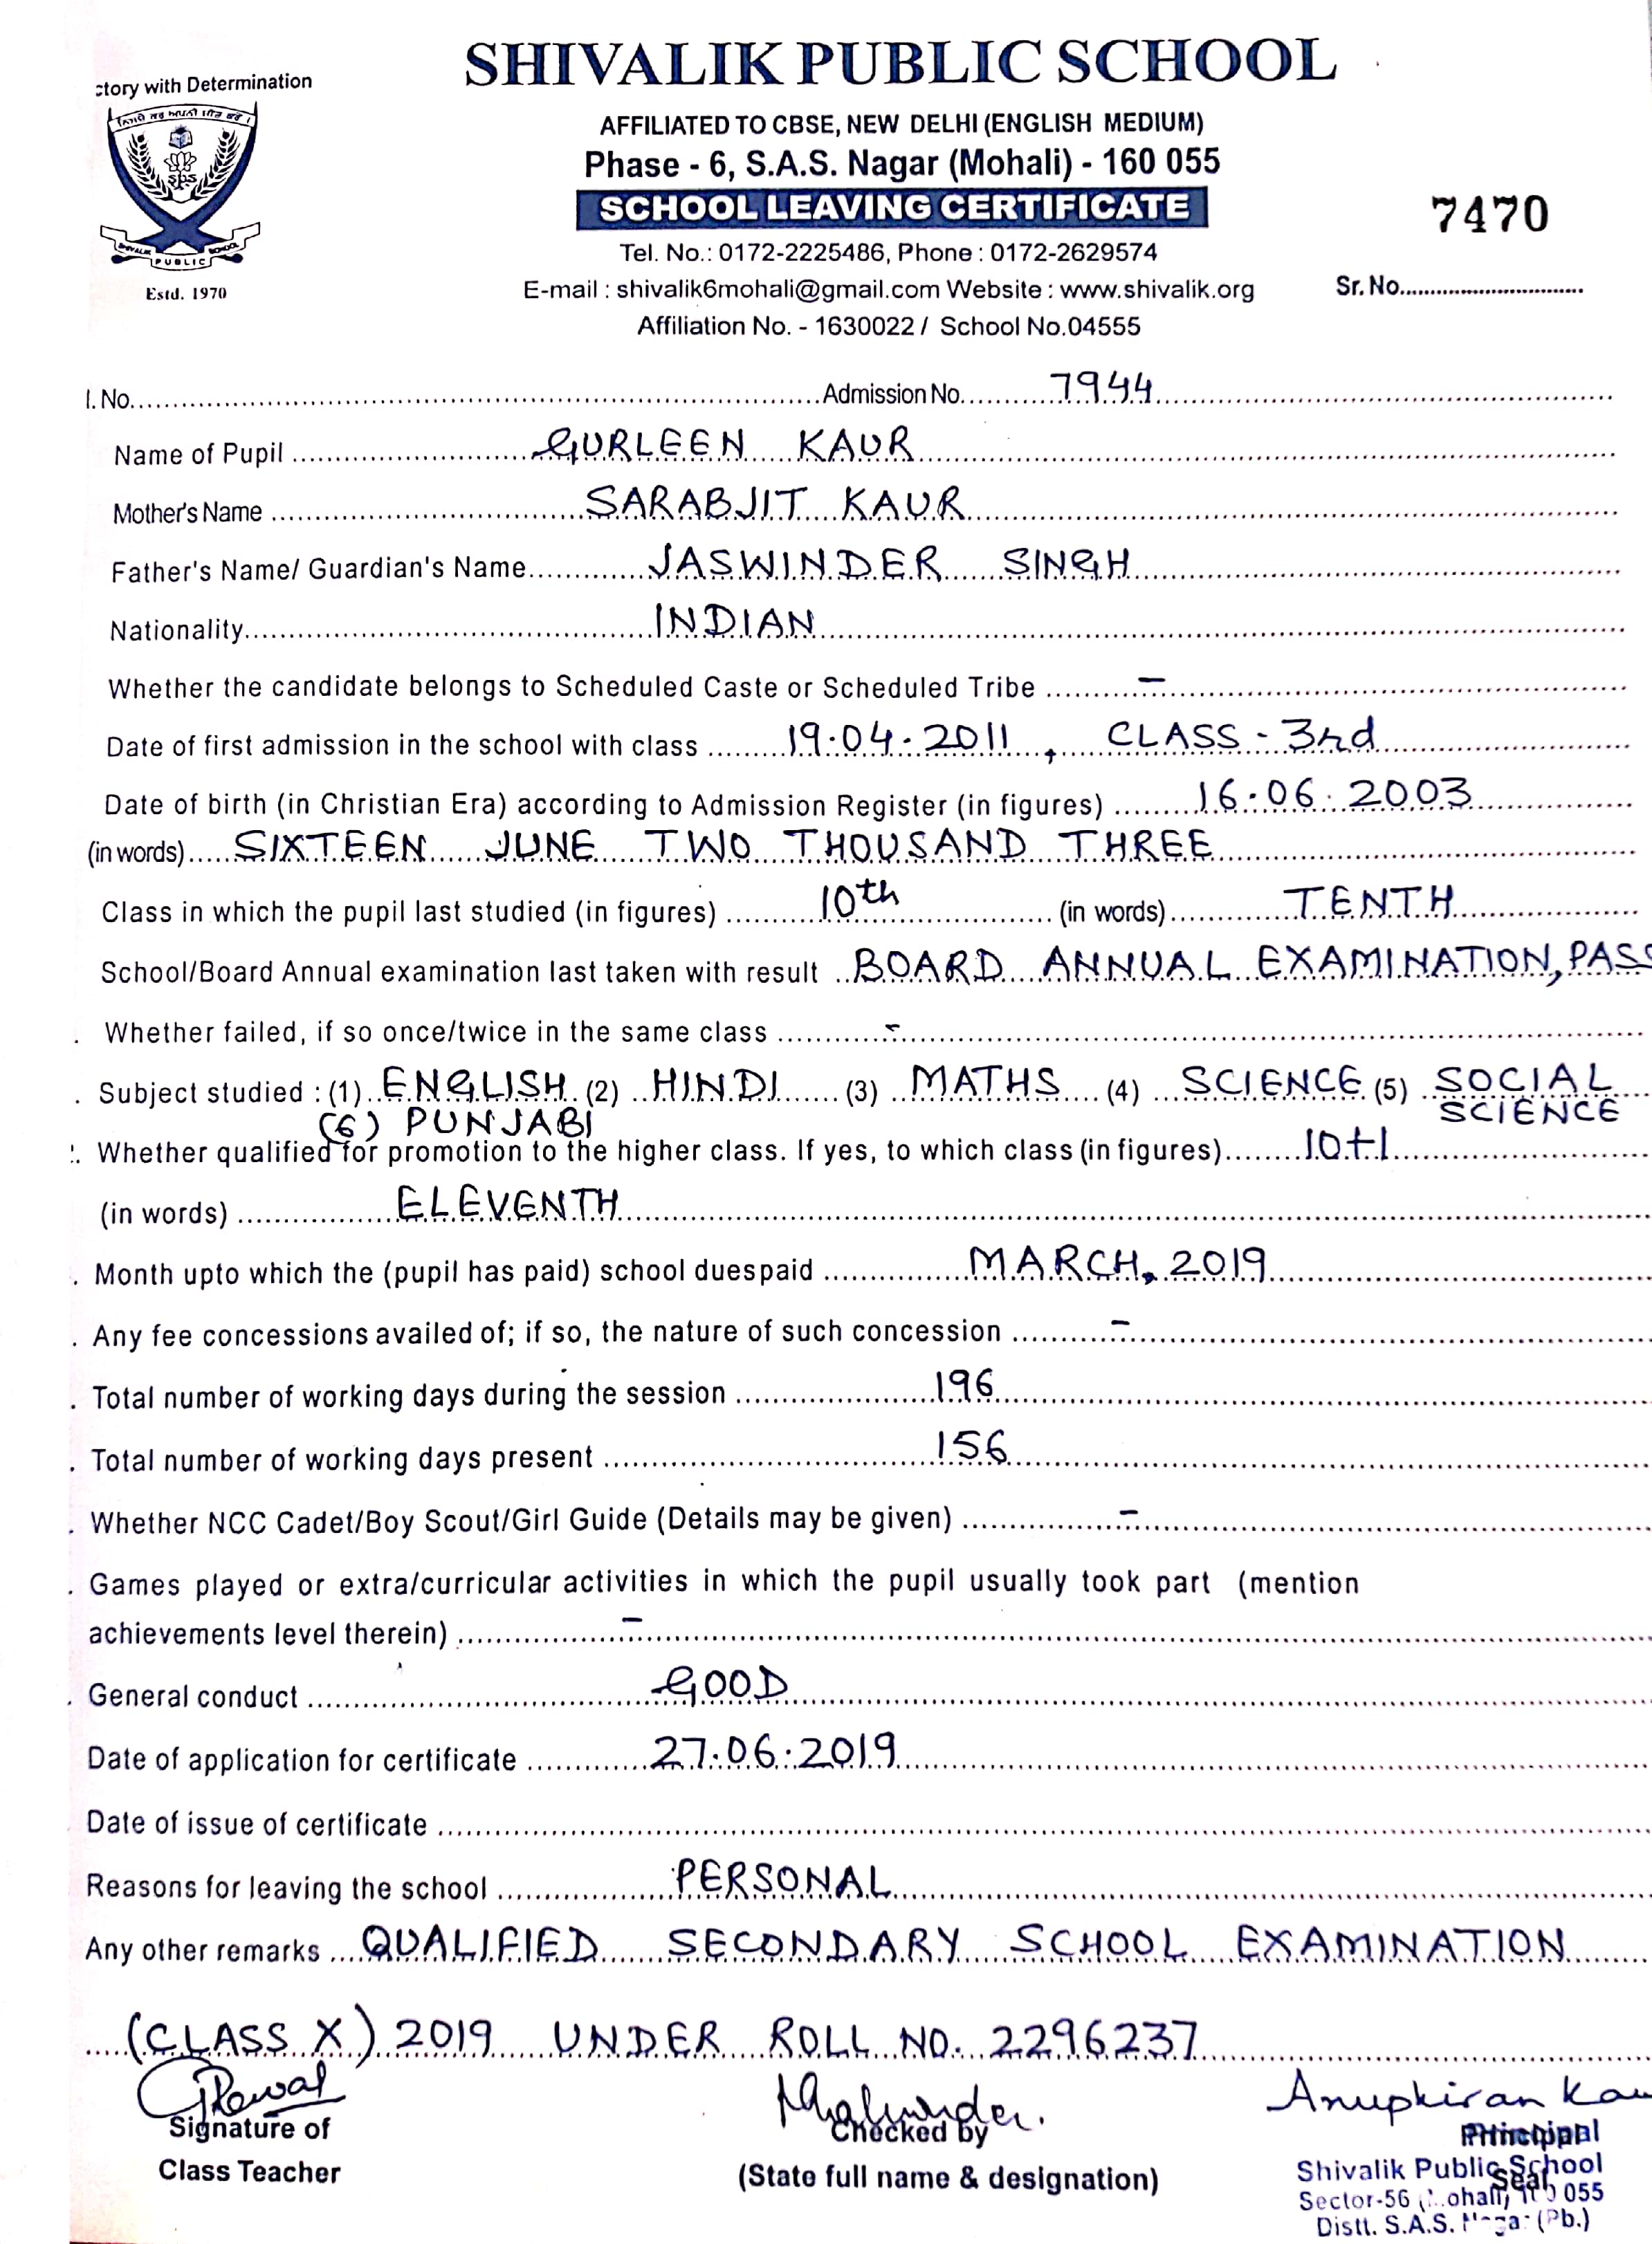 ctory with Determination
SHIVALIK PUBLIC SCHOOL
AFFILIATED TO CBSE, NEW DELHI (ENGLISH MEDIUM)
Phase - 6, S.A.S. Nagar (Mohali) - 160 055
SCHOOL LEAVING CERTIFICATE
7470
Tel. No.: 0172-2225486, Phone : 0172-2629574
E-mail : shivalik6mohali@gmail.com Website : www.shivalik.org
Sr. No.
Affiliation No. - 1630022 / School No.04555
SPS
SHIVALIK PUBLIC SCHOOL
Estd. 1970
I. No. Admission No. 7944
Name of Pupil GURLEEN KAUR
Mother's Name SARABJIT KAUR
Father's Name/ Guardian's Name JASWINDER SINGH
Nationality INDIAN
Whether the candidate belongs to Scheduled Caste or Scheduled Tribe –
Date of first admission in the school with class 19.04.2011, CLASS - 3rd
Date of birth (in Christian Era) according to Admission Register (in figures) 16.06.2003
(in words) SIXTEEN JUNE TWO THOUSAND THREE
Class in which the pupil last studied (in figures) 10th (in words) TENTH
School/Board Annual examination last taken with result BOARD ANNUAL EXAMINATION, PASS
. Whether failed, if so once/twice in the same class -
. Subject studied : (1) ENGLISH (2) HINDI (3) MATHS (4) SCIENCE (5) SOCIAL SCIENCE
(6) PUNJABI
. Whether qualified for promotion to the higher class. If yes, to which class (in figures) 10+1
(in words) ELEVENTH
. Month upto which the (pupil has paid) school duespaid MARCH, 2019
. Any fee concessions availed of; if so, the nature of such concession -
. Total number of working days during the session 196
. Total number of working days present 156
. Whether NCC Cadet/Boy Scout/Girl Guide (Details may be given) -
. Games played or extra/curricular activities in which the pupil usually took part (mention
achievements level therein) -
. General conduct GOOD
Date of application for certificate 27.06.2019
Date of issue of certificate
Reasons for leaving the school PERSONAL
Any other remarks QUALIFIED SECONDARY SCHOOL EXAMINATION
(CLASS X) 2019 UNDER ROLL NO. 2296237
Anupkiran Kau
Signature of
Class Teacher
Checked by
(State full name & designation)
Principal
Seal
Principal
Shivalik Public School
Sector-56 055
Distt. S.A.S. (Pb.)